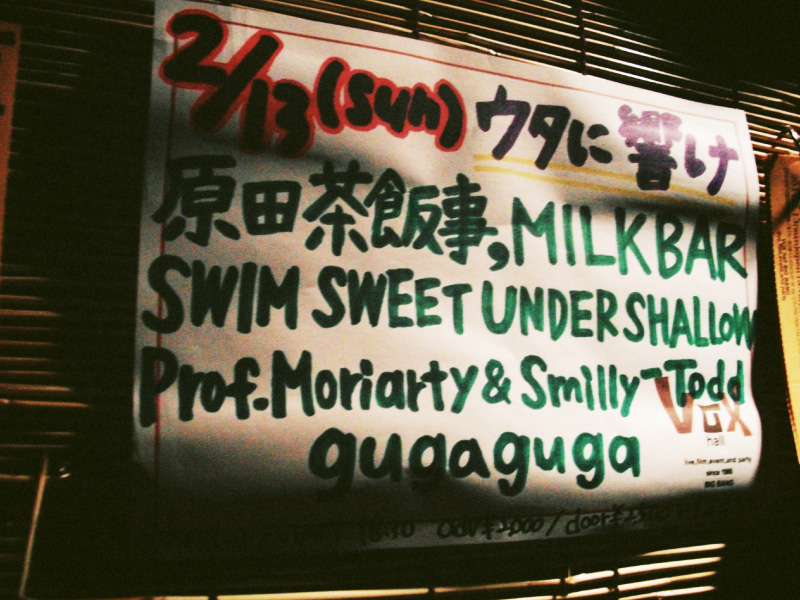 2/13(sun) ウタに響け
原田茶飯事, MILKBAR
SWIM SWEET UNDER SHALLOW
Prof.Moriarty & Smilly-Todd
gugaguga
VOX
hall
live,film,event,and party
since 1986
BIG BANG
18:30 adv¥2000/door¥2500